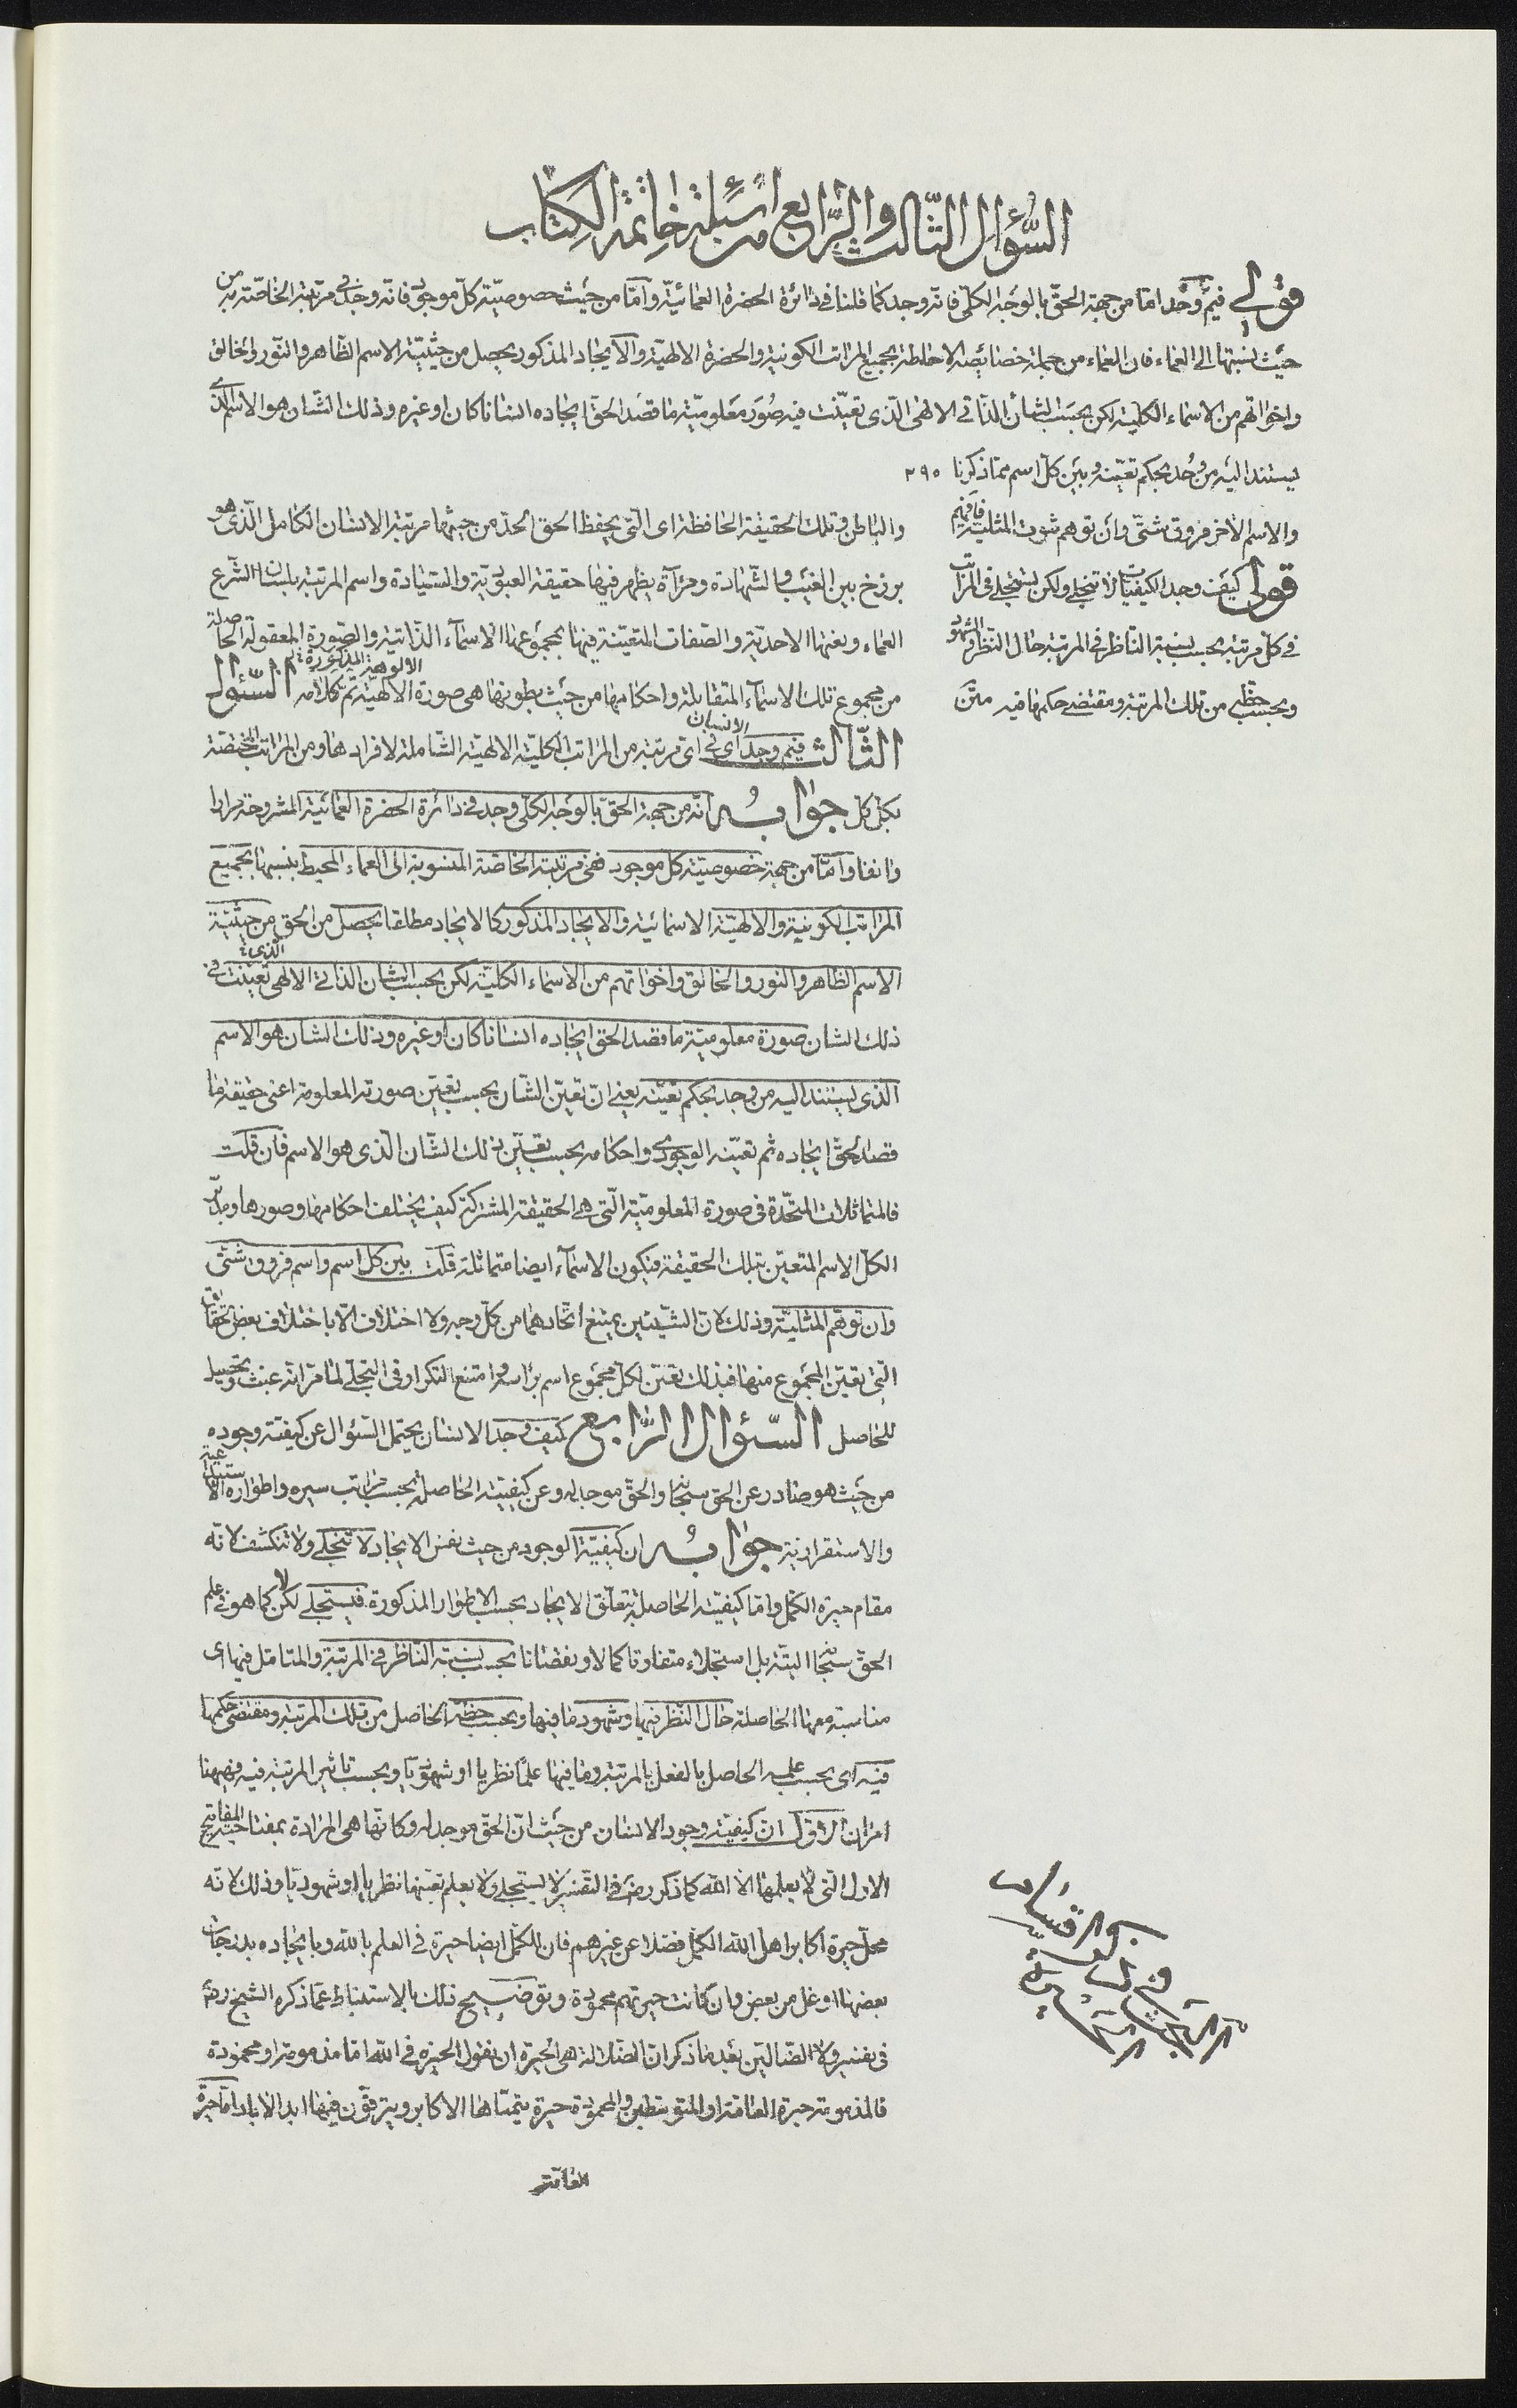 السُّؤال الثّالث والرّابع من اسئلة خاتمة الكتاب
قولي فيمَ وُجد امّا من جهة الحقّ بالوجه الكلّي فانه وجد كما قلنا في دائرة الحضرة العمائيّة وامّا من حيث خصوصيّة كلّ موجود فانه وجد في مرتبته الخاصّة به من
حيث نسبتها الى العماء فان العماء من جملة خصائصه الاحاطة بجميع المراتب الكونية والحضرة الالهيّة والايجاد المذكور يحصل من حيثيّة الاسم الظّاهر والنّور والخالق
واخواتهم من الاسماء الكلية لكن بحسب الشأن الذّاتي الالهي الّذي تعيّنت فيه صُوَر معلوميّة ما قصد الحقّ ايجاده انسانا كان او غيره وذلك الشّان هو الاسم الّذي
يستند اليه من وُجد بحكم تعيّنه وبين كلّ اسم ممّا ذكرنا ٢٩٥
والاسم الآخر فروق شتّى وان توهم ثبوت المثليّة فافهم
قولي كيف وجد الكيفيّات لا تنجلي ولكن يستجلي في المراتب
في كلّ مرتبة بحسب نسبة النّاظر في المرتبة حال النّظر والشهود
وبحسب حظّه من تلك المرتبة ومقتضى حكمها فيه متن
والباطن وتلك الحقيقة الحافظة اي التي يحفظ الحق الحد من حيثها مرتبة الانسان الكامل الّذي هو
برزخ بين الغيب والشّهادة ومرآة يظهر فيها حقيقة العبوديّة والسّيادة واسم المرتبة بلسان الشرع
العماء ونعتها الاحديّة والصّفات المتعيّنة فيها بمجموعها الاسمآء الذّاتية والصّورة المعقولة الحاصلة
من مجموع تلك الاسمآء المتقابلة واحكامها من حيث بطونها هي صورة الالهيّة الالوهية المذكورة تم كلامه السّئوال
الثّالث فيم وجد الانسان اي في اي مرتبة من المراتب الكليّة الالهيّة الشّاملة لافرادها ومن المراتب المختصّة
بكل كل جوابه انّه من جهة الحقّ بالوجه الكلّي وجد في دائرة الحضرة العمائيّة المشروحة مرارا
وانفا وامّا من جهة خصوصيّة كل موجود فهي مرتبته الخاصّة المنسوبة الى العماء المحيط بنسبها بجميع
المراتب الكونية والالهيّة الاسمائية والايجاد المذكور كالايجاد مطلقا يحصل من الحق من حيثيّة
الاسم الظاهر والنور والخالق واخواتهم من الاسماء الكليّة لكن بحسب الشان الذاتي الالهي الّذي تعيّنت في
ذلك الشان صورة معلوميّة ما قصد الحق ايجاده انسانا كان او غيره وذلك الشان هو الاسم
الّذي يستند اليه من وجد بحكم تعيّنه يعني انّ تعيّن الشّان بحسب تعيّن صورته المعلومة اعني حقيقة ما
قصد الحقّ ايجاده ثم تعيّنه الوجودي واحكامه بحسب تعيّن ذلك الشّان الّذي هو الاسم فان قلت
فالمتماثلات المتّحدة في صورة المعلوميّة الّتي هي الحقيقة المشتركة كيف يختلف احكامها وصورها
الكلّ الاسم المتعيّن بتلك الحقيقة فيكون الاسمآء ايضا متماثلة قلت بين كل اسم واسم فروق شتّى
وان توهّم المثليّة وذلك لانّ الشّيئين يمتنع اتّحادهما من كلّ وجه ولا اختلاف الّا باختلاف بعض الحقائق
التي تعيّن المجموع منها فبذلك تعيّن لكلّ مجموع اسم برأسه وامتنع التكرار في التجلّي لما مرّ انه عبث وتحصيل
للحاصل السّئوال الرّابع كيف وجد الانسان يحتمل السّئوال عن كيفيّة وجوده
من حيث هو صادر عن الحق سبحانه والحقّ موجد له وعن كيفيّته الحاصلة بحسب مراتب سيره واطواره الاستيداعية
والاستقرارية جوابه ان كيفيّة الوجود من حيث نفس الايجاد لا تنجلي ولا تنكشف لانّه
مقام حيرة الكمّل وامّا كيفيّته الحاصلة بتعلّق الايجاد بحسب الاطوار المذكورة فيستجلي لكن لا كما هو في علم
الحقّ سبحانه البتّة بل استجلاء متفاوتا كمالا ونقصانا بحسب نسبة النّاظر في المرتبة والمتأمّل فيها اي
مناسبة معها الحاصلة حال النّظر فيها وشهود ما فيها وبحسب حظّه الحاصل من تلك المرتبة ومقتضى حكمها
فيه اي بحسب علمه الحاصل بالفعل بالمرتبة وما فيها علمًا نظريا او شهوديّا وبحسب تاثير المرتبة فيه فههنا
امران الاوّل انّ كيفيّة وجود الانسان من حيث انّ الحقّ موجد له وكانّها هي المرادة بمفتاح المفاتيح
الاول التي لا يعلمها الّا الله كما ذكر رضي في التفسير لا يستجلي ولا يعلم تعيّنها نظريا او شهوديّا وذلك لانّه
محلّ حيرة اكابر اهل الله الكمّل فضلا عن غيرهم فان للكمّل ايضا حيرة في العلم بالله وبايجاده بدرجات
بعضها اوغل من بعض وان كانت حيرتهم محمودة وتوضيح ذلك بالاستنباط عمّا ذكره الشيخ رضي
في تفسير ولا الضّالّين بعد ما ذكر انّ الضّلالة هي الحيرة ان نقول الحيرة في الله امّا مذمومة او محمودة
فالمذمومة حيرة العامّة او المتوسّطين والمحمودة حيرة يتمنّاها الاكابر ويترقّون فيها ابد الآباد امّا حيرة
العامّة